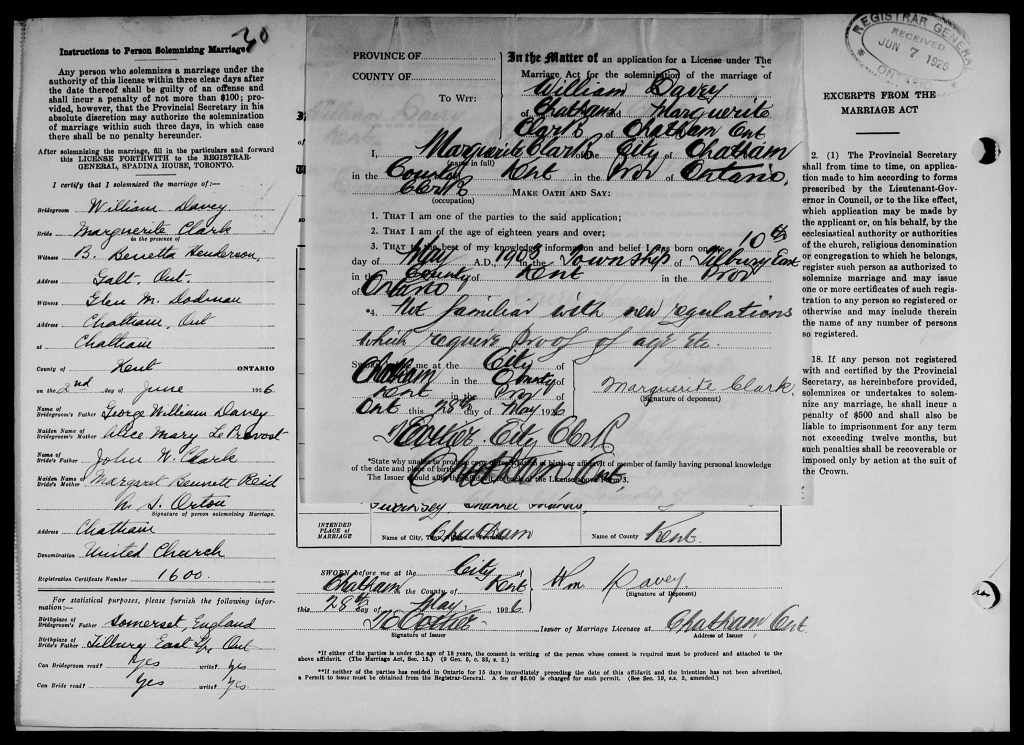 30
Instructions to Person Solemnizing Marriage
Any person who solemnizes a marriage under the
authority of this license within three clear days after
the date thereof shall be guilty of an offense and
shall incur a penalty of not more than $100; pro-
vided, however, that the Provincial Secretary in his
absolute discretion may authorize the solemnization
of marriage within such three days, in which case
there shall be no penalty hereunder.
After solemnizing the marriage, fill in the particulars and forward
this LICENSE FORTHWITH to the REGISTRAR-
GENERAL, SPADINA HOUSE, TORONTO.
I certify that I solemnized the marriage of:—
Bridegroom William Davey
Bride Marguerite Clark
in the presence of
Witness B. Benetta Henderson,
Address Galt, Ont.
Witness Glen M. Dodman
Address Chatham, Ont
at Chatham
County of Kent ONTARIO
on the 2nd day of June 1926
Name of Bridegroom's Father George William Davey
Maiden Name of Bridegroom's Mother Alice Mary Le Provost
Name of Bride's Father John W. Clark
Maiden Name of Bride's Mother Margaret Bennett Reid
Orton
Signature of person solemnizing Marriage.
Address Chatham
Denomination United Church
Registration Certificate Number 1600.
For statistical purposes, please furnish the following infor-
mation:—
Birthplace of Bridegroom's Father Somerset, England
Birthplace of Bride's Father Tilbury East Tp, Ont
Can Bridegroom read? Yes write? Yes
Can Bride read? Yes write? Yes
PROVINCE OF
COUNTY OF
To Wit:
In the Matter of an application for a License under The
Marriage Act for the solemnization of the marriage of
William Davey
of Chatham and Marguerite
Clark of Chatham Ont
I, Marguerite Clark of the City of Chatham
(name in full)
in the County of Kent in the Prov of Ontario,
Clerk MAKE OATH AND SAY:
(occupation)
1. THAT I am one of the parties to the said application;
2. THAT I am of the age of eighteen years and over;
3. THAT to the best of my knowledge information and belief I was born on the 10th
day of A.D., 1903 in the Township of Tilbury East
in the County of Kent in the Prov
of Ontario
*4. Not familiar with new regulations
which require proof of age etc.
SWORN before me at the City of
Chatham in the County of
Kent in the Prov of
Ont this 28th day of May 1926
Marguerite Clark.
(Signature of deponent)
City Clerk
Chatham Ont.
*State why unable to produce certificate of birth or affidavit of member of family having personal knowledge
of the date and place of birth
The Issuer should
Guernsey, Channel Islands
INTENDED
PLACE of
MARRIAGE
Chatham
Name of City, Town, Village or Township
Name of County Kent.
SWORN before me at the City of
Chatham, the County of Kent
this 28th day of May 1926
Wm Davey
(Signature of Deponent)
Signature of Issuer
Issuer of Marriage Licenses at Chatham, Ont.
Address of Issuer
*If either of the parties is under the age of 18 years, the consent in writing of the person whose consent is required must be produced and attached to the
above affidavit. (The Marriage Act, Sec. 15.) (9 Geo. 5, c. 35, s. 2.)
**If neither of the parties has resided in Ontario for 15 days immediately preceding the date of this affidavit and the intention has not been advertised,
a Permit to issue must be obtained from the Registrar-General. A fee of $5.00 is charged for such permit. (See Sec. 19, s.s. 2, amended.)
REGISTRAR GENERAL
RECEIVED
JUN 7 1926
EXCERPTS FROM THE
MARRIAGE ACT
2. (1) The Provincial Secretary
shall from time to time, on applica-
tion made to him according to forms
prescribed by the Lieutenant-Gov-
ernor in Council, or to the like effect,
which application may be made by
the applicant or, on his behalf, by the
ecclesiastical authority or authorities
of the church, religious denomination
or congregation to which he belongs,
register such person as authorized to
solemnize marriage and may issue
one or more certificates of such regis-
tration to any person so registered or
otherwise and may include therein
the name of any number of persons
so registered.
18. If any person not registered
with and certified by the Provincial
Secretary, as hereinbefore provided,
solemnizes or undertakes to solem-
nize any marriage, he shall incur a
penalty of $500 and shall also be
liable to imprisonment for any term
not exceeding twelve months, but
such penalties shall be recoverable or
imposed only by action at the suit of
the Crown.